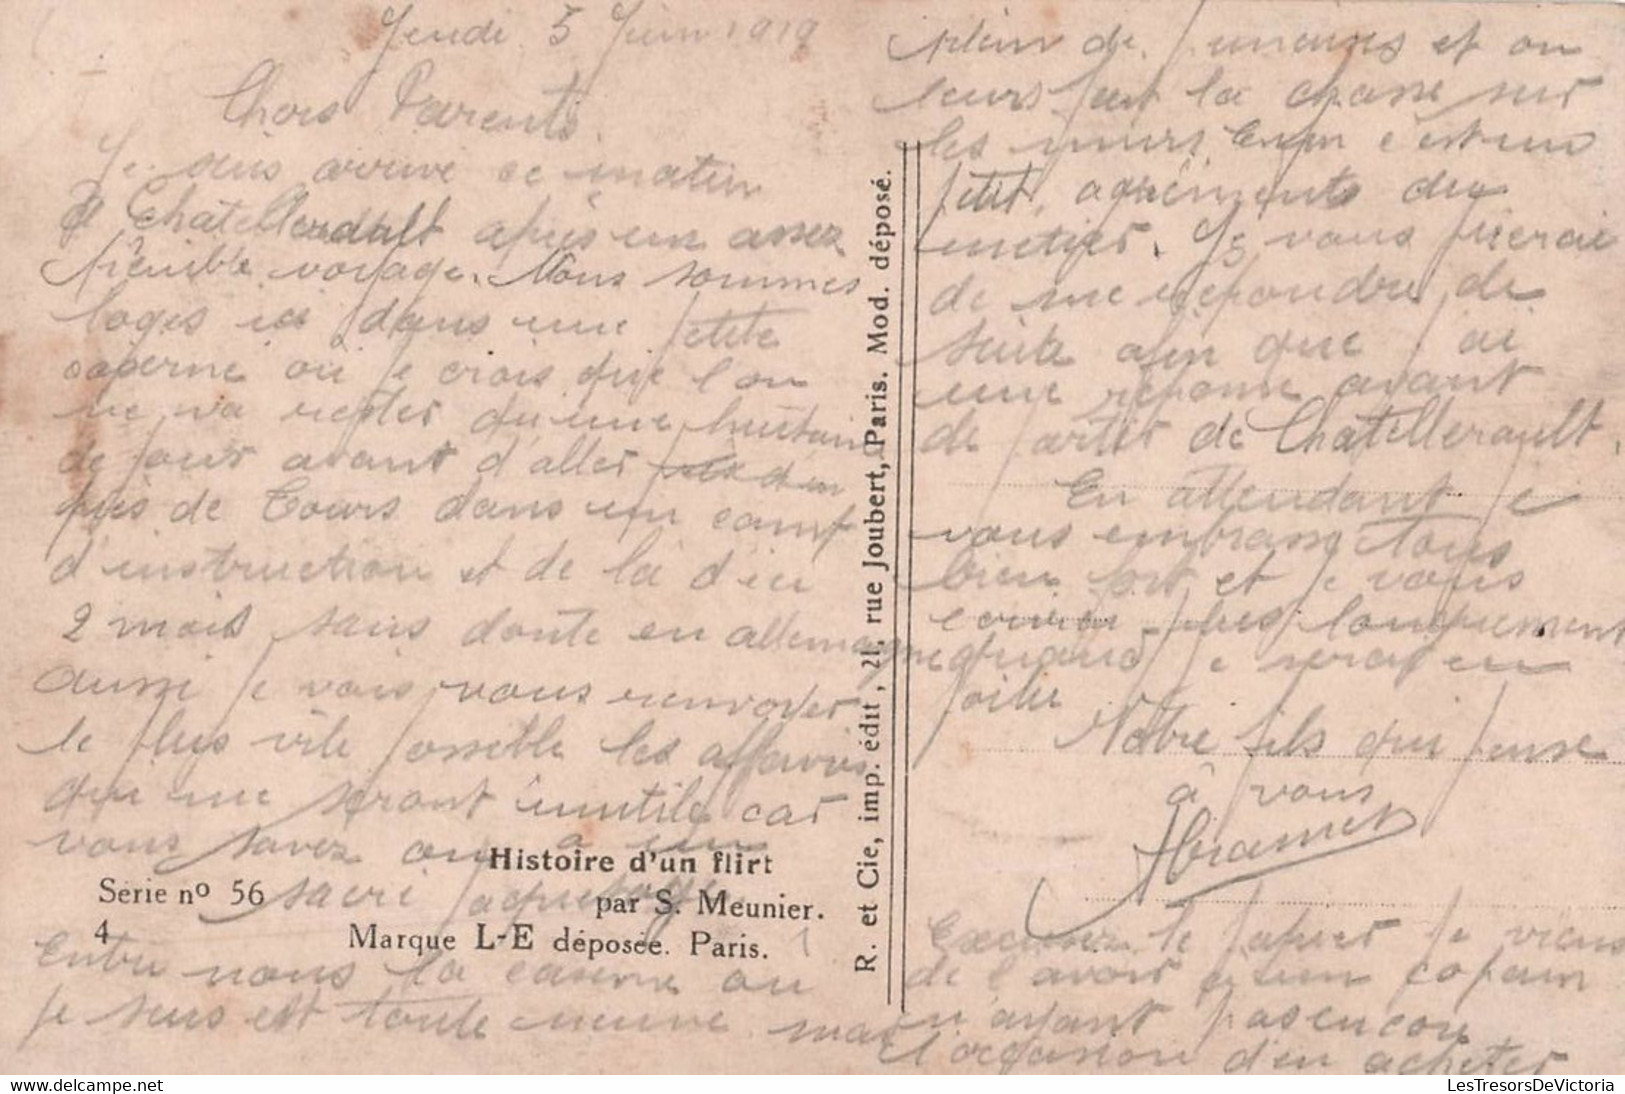 Jeudi 5 Juin 1919
Chers Parents.
Je suis arrivé ce matin
à Chatellerault après un assez
pénible voyage. Nous sommes
logés ici dans une petite
caserne ou je crois que l'on
ne va rester qu'une huitaine
de jour avant d'aller
près de Tours dans un camp
d'instruction et de là d'ici
2 mois sans doute en allemagne
aussi je vais vous renvoyer
le plus vite possible les affaires
qui me seront inutile car
vous savez on a un
sacré paquetage.
Entre nous la caserne ou
je suis est toute neuve mais
plein de punaises et on
leurs fait la chasse sur
les murs. Enfin c'est un
petit agréments du
metier. Je vous prierai
de me repondre de
suite afin que j'ai
une reponse avant
de partir de Chatellerault.
En attendant je
vous embrasse tous
bien fort et je vous
ecrirai plus longuement
quand je serai en
Votre fils qui pense
à vous
Excusez le papier je viens
de l'avoir d'un copain
n'ayant pas encore
l'occasion d'en acheter
Histoire d'un flirt
Série nº 56
par S. Meunier.
4
Marque L-E déposée. Paris.
R. et Cie, imp. édit, 21, rue Joubert, Paris. Mod. déposé.
LesTresorsDeVictoria